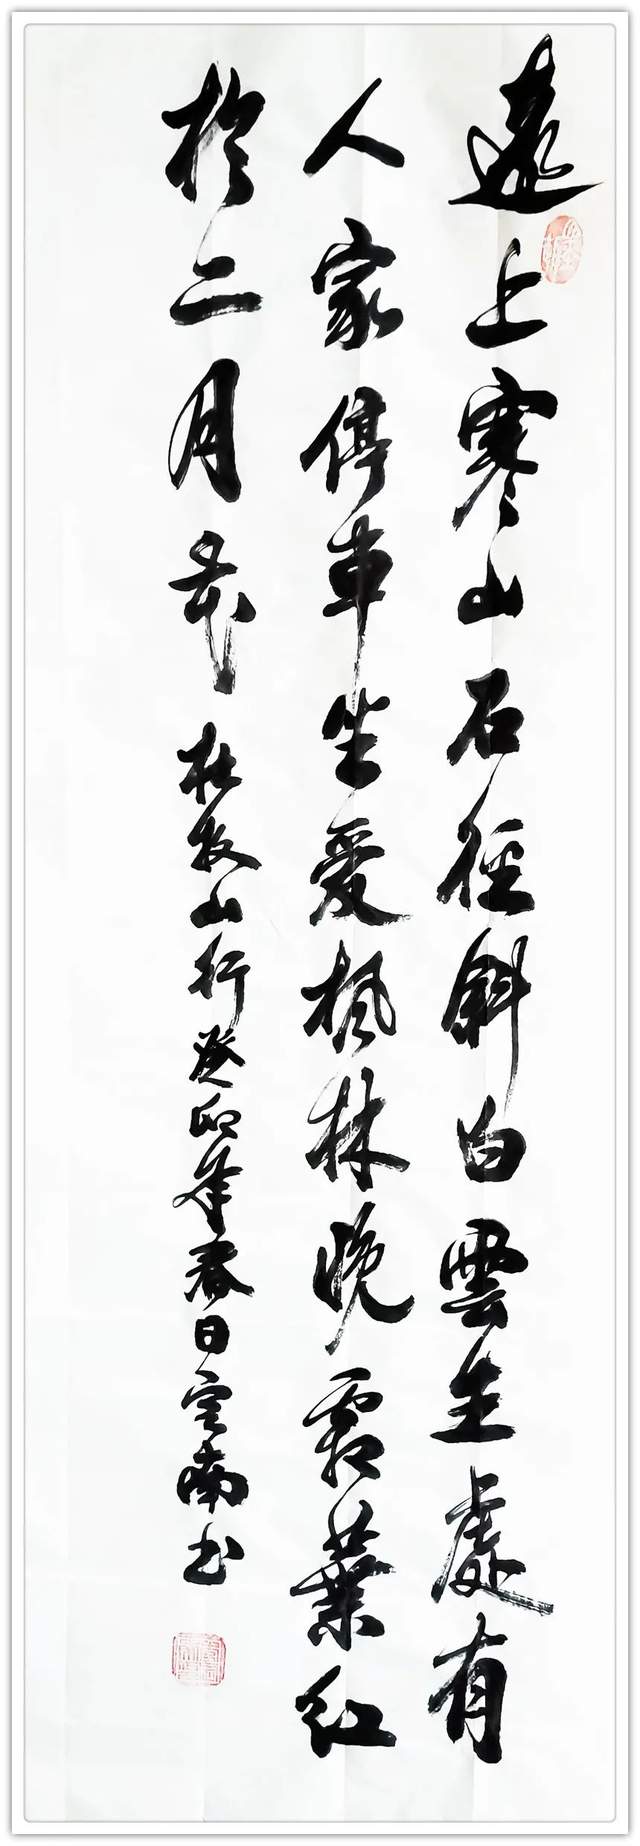 遠上寒山石徑斜白雲生處有
人家停車坐愛楓林晚霜葉紅
於二月花
杜牧山行癸卯年春日雲南书